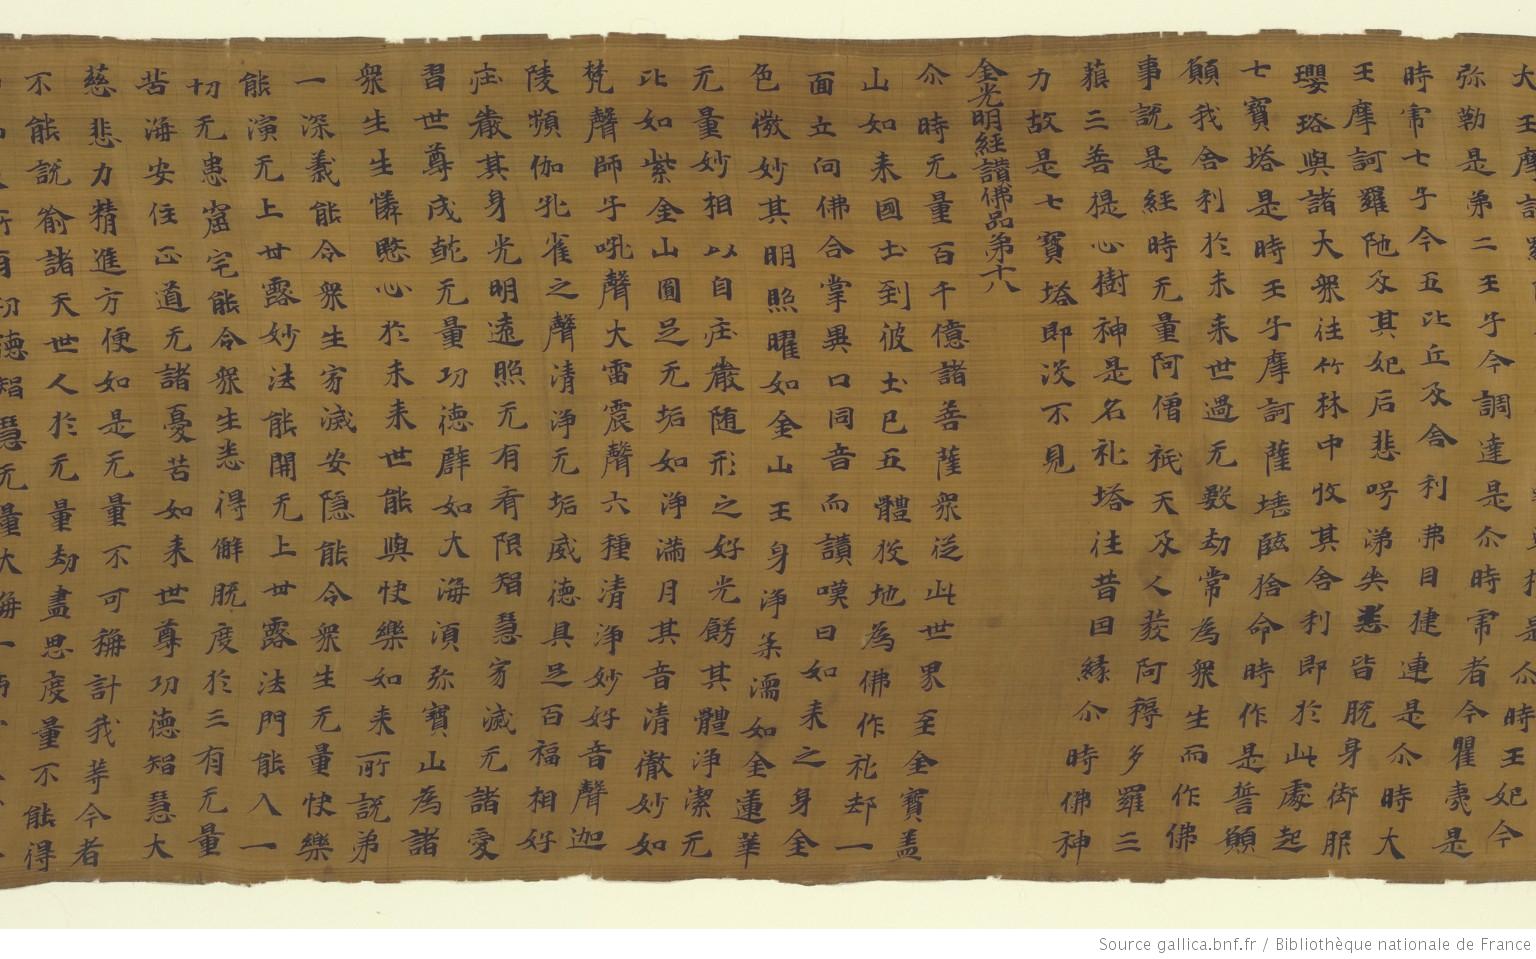 大王摩訶羅 是尒時王妃今
弥勒是第二王子今調達是尒時虎者今瞿夷是
時虎七子今五比丘及舍利弗目揵連是尒時大
王摩訶羅陁及其妃后悲号涕哭悉皆脱身御服
瓔珞與諸大衆往竹林中收其舍利即於此處起
七寶塔是時王子摩訶薩埵臨捨命時作是誓願
願我舍利於未来世過无數劫常為衆生而作佛
事說是經時无量阿僧祇天及人發阿耨多羅三
藐三菩提心樹神是名礼塔往昔因緣尒時佛神
力故是七寶塔即没不見
金光明經讃佛品第十八
尒時无量百千億諸菩薩衆從此世界至金寶盖
山如来國土到彼土已五體投地為佛作礼却一
面立向佛合掌異口同音而讃嘆曰如来之身金
色微妙其明照曜如金山王身淨柔濡如金蓮華
无量妙相以自庄嚴随形之好光餝其體淨潔无
比如紫金山圓足无垢如淨滿月其音清徹妙如
梵聲師子吼聲大雷震聲六種清淨妙好音聲迦
陵頻伽孔雀之聲清淨无垢威德具足百福相好
庄嚴其身光明遠照无有齊限智慧寂滅无諸愛
習世尊成就无量功德譬如大海湏弥寶山為諸
衆生生憐愍心於未来世能與快樂如来所說弟
一深義能令衆生寂滅安隱能令衆生无量快樂
能演无上甘露妙法能開无上甘露法門能入一
切无患窟宅能令衆生悉得解脱度於三有无量
苦海安住正道无諸憂苦如来世尊功德智慧大
慈悲力精進方便如是无量不可稱計我等今者
不能說喻諸天世人於无量劫盡思度量不能得
所有功德智慧无量大海一
Source gallica.bnf.fr / Bibliothèque nationale de France